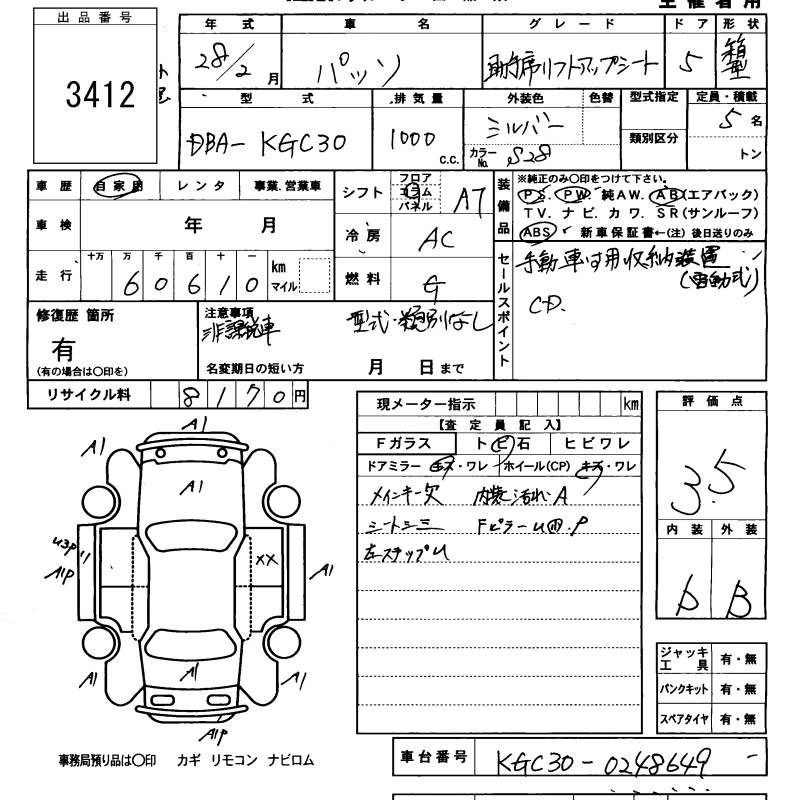 出品番号
3412
年式
28/2月
車名
パッソ
グレード
助手席リフトアップシート
ドア
5
形状
箱型
型式
DBA-KGC30
排気量
1000 c.c.
外装色
シルバー
色替
カラーNo. S28
型式指定
類別区分
定員・積載
5名
トン
車歴 自家用 レンタ 事業.営業車
車検 年 月
走行 十万 万 千 百 十
60610 km マイル
シフト フロア コラム パネル A7
冷房 AC
燃料 G
装備品
※純正のみ〇印をつけて下さい。
PS. PW. 純AW. AB(エアバック)
TV. ナビ. カワ. SR(サンルーフ)
ABS ・ 新車保証書←(注)後日送りのみ
セールスポイント
手動車イス用収納装置
(電動式)
CD.
修復歴 箇所
有
(有の場合は〇印を)
注意事項
非課税車
型式・類別なし
名変期日の短い方 月 日まで
リサイクル料 8170円
現メーター指示 km
【査定員記入】
Fガラス トビ石 ヒビワレ
ドアミラー キズ・ワレ ホイール(CP) キズ・ワレ
メインキー欠 内装汚れ.A
シートシミ Fピラー
左ステップU
評価点
3.5
内装 外装
D B
A1
A1 A1
A1
U3P
A1P
XX
A1
A1 A1 A1
A1P
ジャッキ工具 有・無
パンクキット 有・無
スペアタイヤ 有・無
事務局預り品は〇印 カギ リモコン ナビロム
車台番号 KGC30-0248649